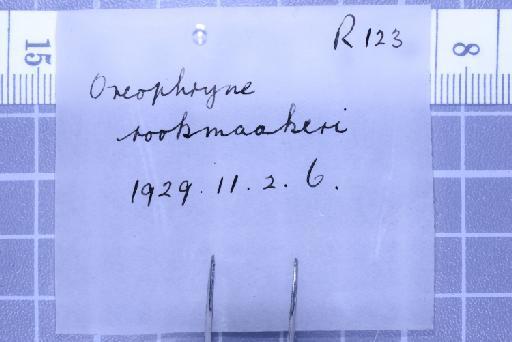 R 123
Oreophryne
rookmaakeri
1929.11.2.6.
15
8